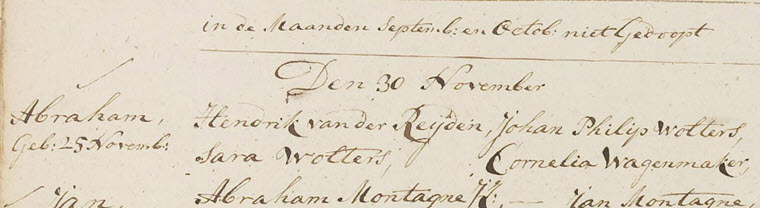 in de Maanden Septemb: en Octob: niet Gedoopt
Den 30 November
Abraham, Hendrik van der Reijden, Johan Philip Wolters,
Geb: 25 Novemb: Sara Wolters, Cornelia Wagenmaker,
Jan, Abraham Montagne Jz:, — Jan Montagne,